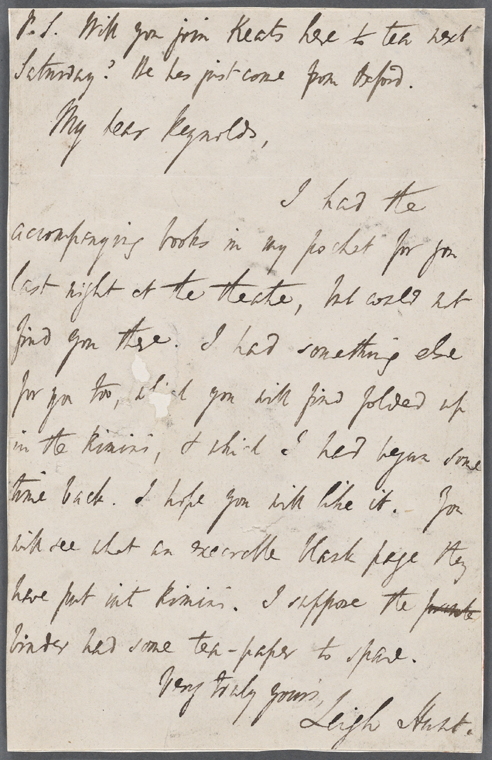 P.S. Will you join Keats here to tea next
Saturday? He has just come from Oxford.
My dear Reynolds,
I had the
accompanying books in my pocket for you
last night at the theatre, but could not
find you there. I had something else
for you too, which you will find folded up
in the Rimini, & which I had begun some
time back. I hope you will like it. - You
will see what an execrable blank page they
have put into Rimini. I suppose the
binder had some tea-paper to spare.
Very truly yours,
Leigh Hunt.